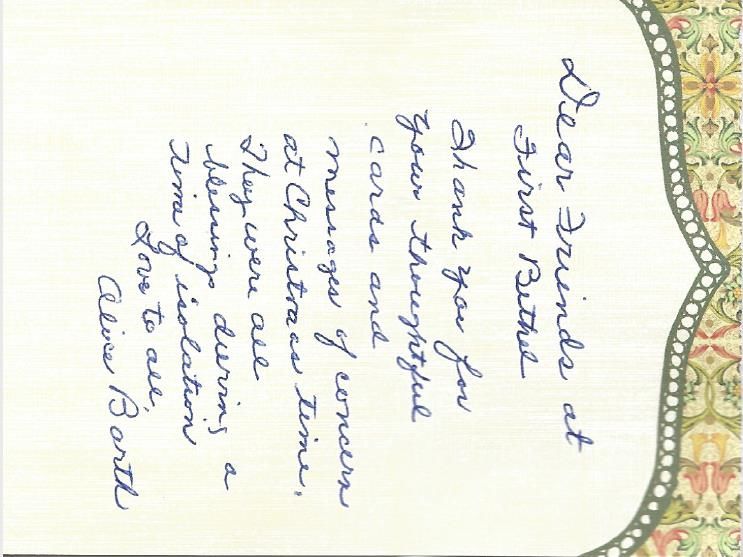 Dear Friends at
First Bethel
Thank you for
your thoughtful
cards and
messages of concern
at Christmas time.
They were all
blessings during a
time of isolation
Love to all,
Alice Barth